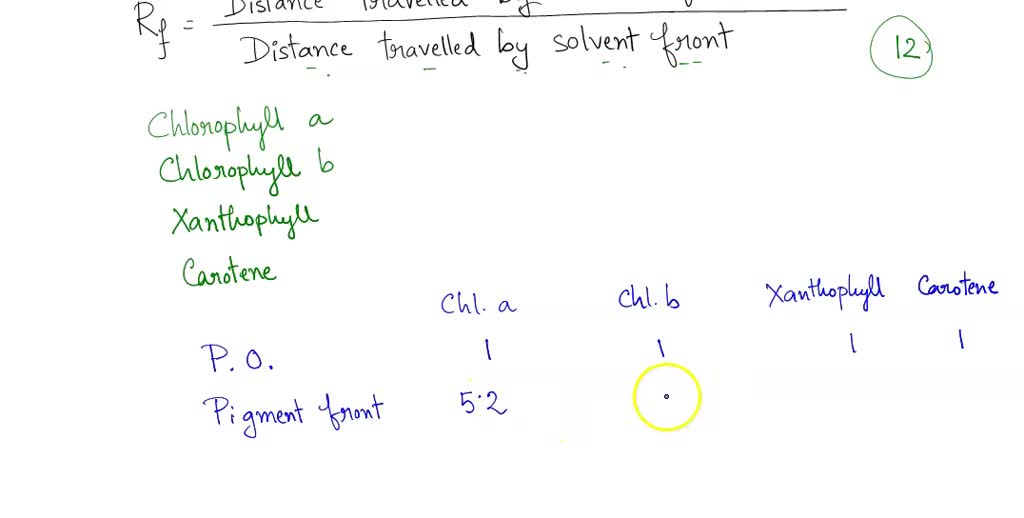 Distance travelled by
Rf =
Distance travelled by solvent front
12
Chlorophyll a
Chlorophyll b
Xanthophyll
Carotene
Chl. a Chl. b Xanthophyll Carotene
P.O. 1 1 1 1
Pigment front 5.2